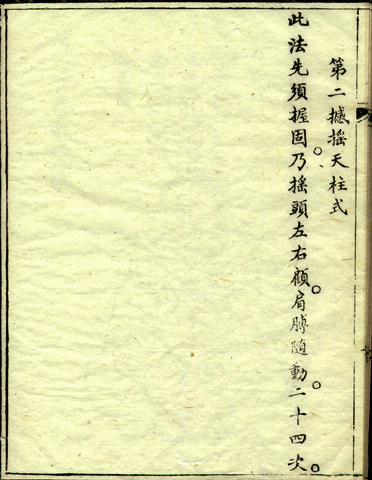 第二撼搖天柱式
此法先須握固。乃搖頭左右顧。肩膊隨動。二十四次。